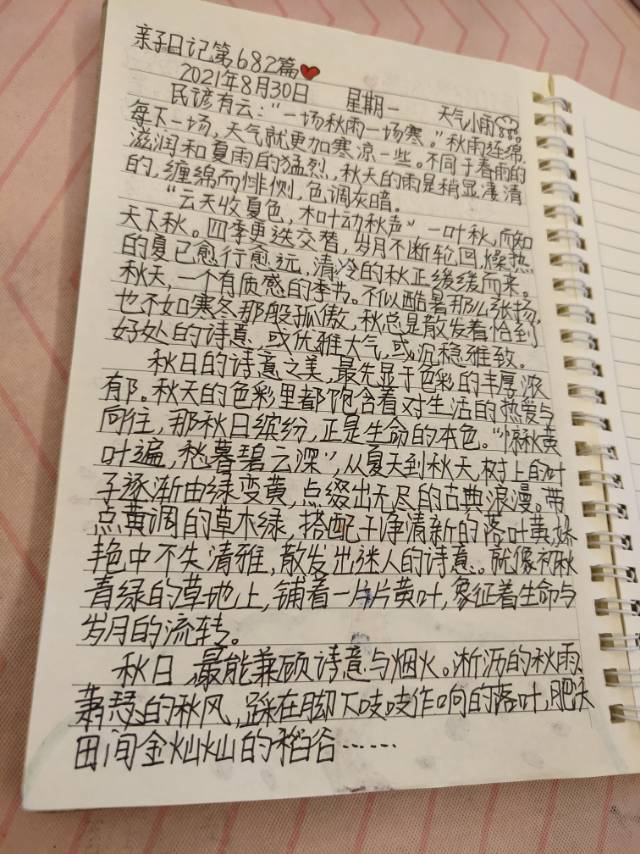 亲子日记第682篇
2021年8月30日 星期一 天气小雨
民谚有云:“一场秋雨一场寒。”秋雨连绵,
每下一场,天气就更加寒凉一些。不同于春雨的
滋润和夏雨的猛烈,秋天的雨是稍显凄清
的,缠绵而悱恻,色调灰暗。
“云天收夏色,木叶动秋声”一叶秋,而知
天下秋。四季更迭交替,岁月不断轮回,燥热
的夏已愈行愈远,清冷的秋正缓缓而来。
秋天,一个有质感的季节。不似酷暑那么张扬,
也不如寒冬那般孤傲,秋总是散发着恰到
好处的诗意,或优雅大气,或沉稳雅致。
秋日的诗意之美,最先显于色彩的丰厚浓
郁。秋天的色彩里都饱含着对生活的热爱与
向往,那秋日缤纷,正是生命的本色。“惊秋黄
叶遍,愁暮碧云深”,从夏天到秋天,树上的叶
子逐渐由绿变黄,点缀出无尽的古典浪漫。带
点黄调的草木绿,搭配干净清新的落叶黄,
艳中不失清雅,散发出迷人的诗意。就像初秋
青绿的草地上,铺着一片片黄叶,象征着生命与
岁月的流转。
秋日,最能兼顾诗意与烟火。淅沥的秋雨,
萧瑟的秋风,踩在脚下吱吱作响的落叶,肥沃
田间金灿灿的稻谷……